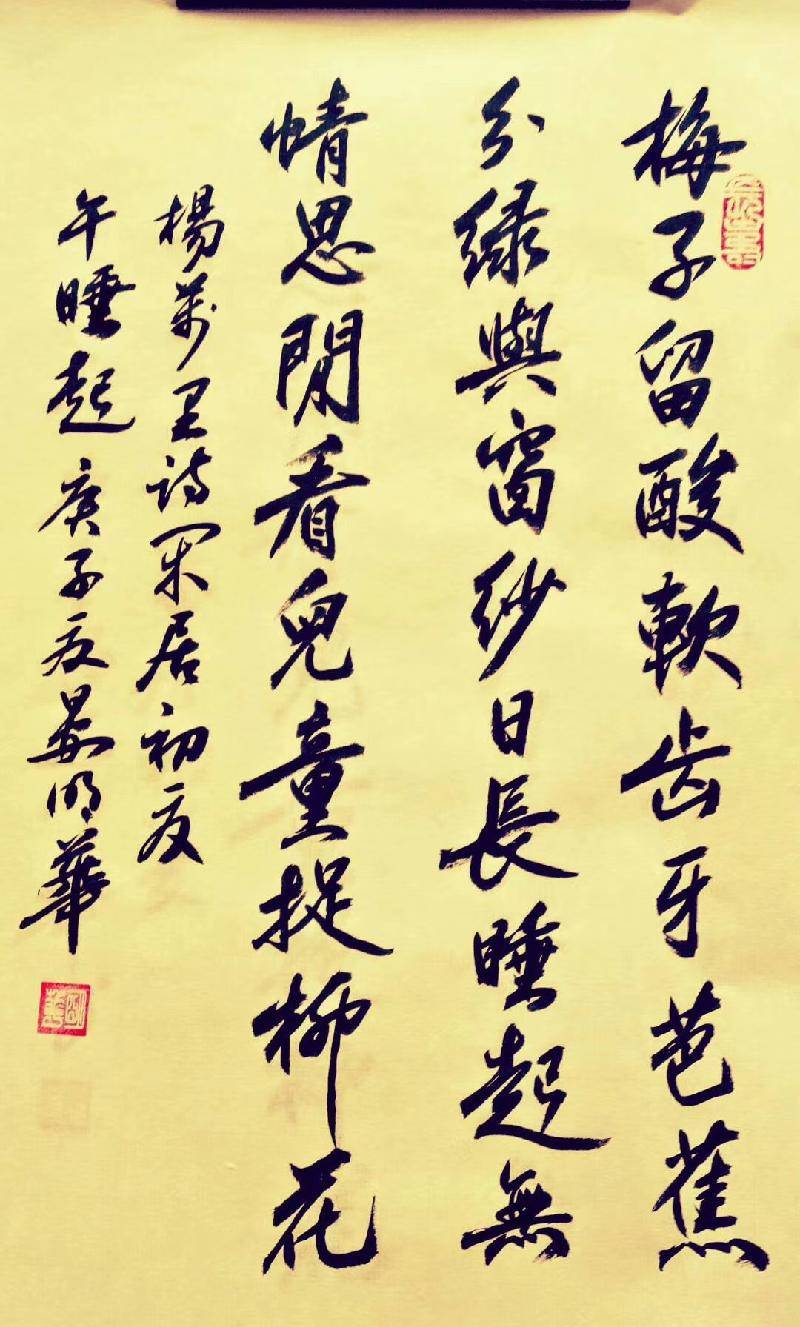 梅子留酸軟齿牙芭蕉
分绿與窗纱日長睡起無
情思閒看兒童捉柳花
楊萬里诗闲居初夏
午睡起庚子夏吴明華